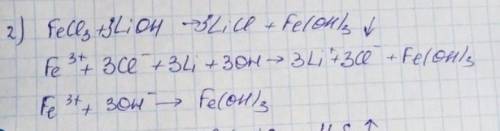 2) FeCl₃+3LiOH →3LiCl + Fe(OH)₃ ↓
Fe³⁺ + 3Cl⁻ +3Li + 3OH → 3Li⁺+3Cl⁻ + Fe(OH)₃
Fe³⁺ + 3OH⁻ → Fe(OH)₃